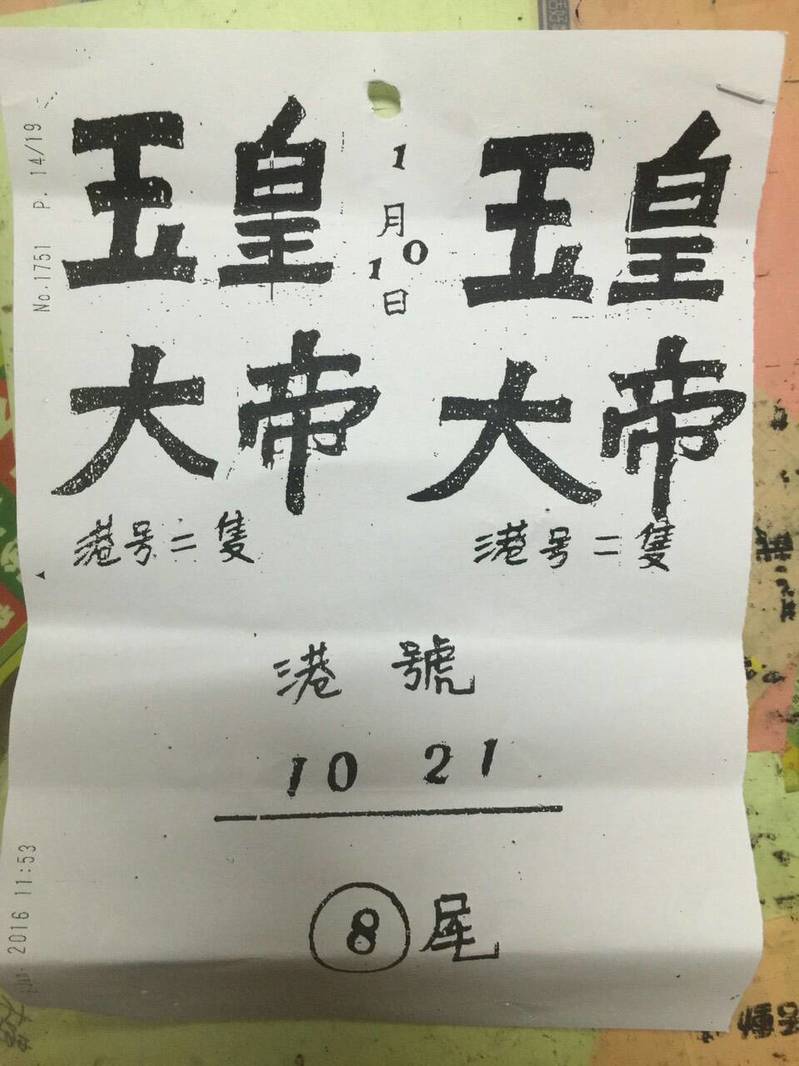 No.1751 P. 14/19
玉皇
大帝
港号二隻
1月10日
玉皇
大帝
港号二隻
港號
10 21
8尾
2016 11:53